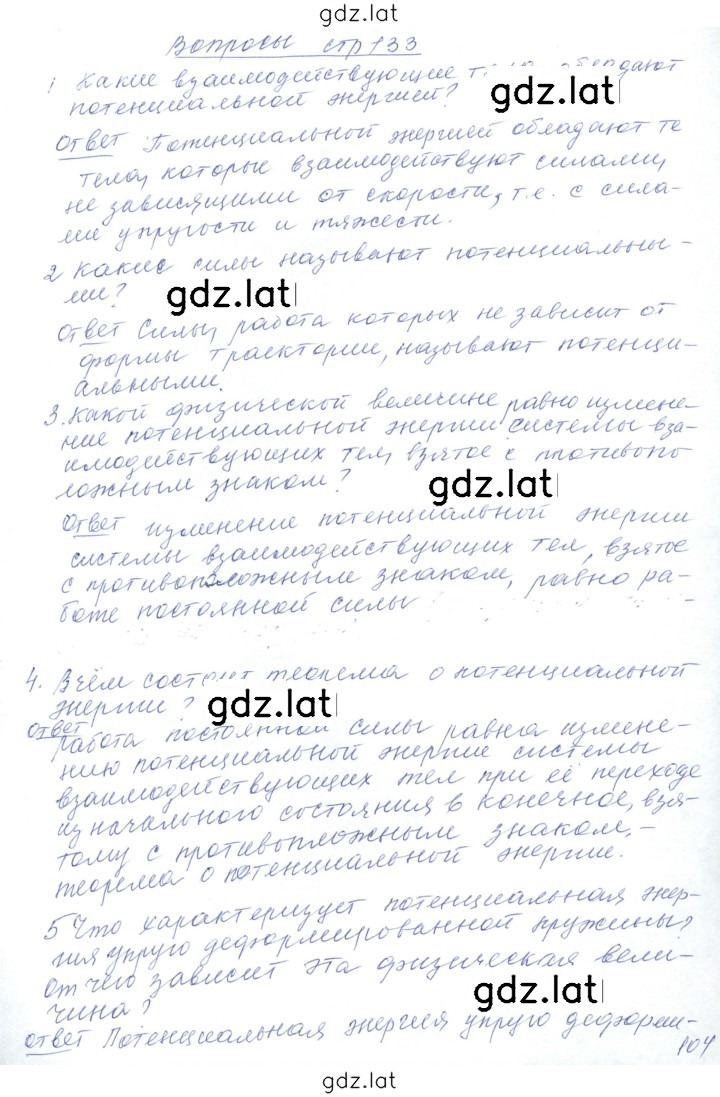 gdz.lat
Вопросы стр 133
1 Какие взаимодействующие обладают
потенциальной энергией? gdz.lat
Ответ Потенциальной энергией обладают те
тела, которые взаимодействуют силами,
не зависящими от скорости, т.е. с сила-
ми упругости и тяжести.
2 Какие силы называют потенциальны-
ми? gdz.lat
Ответ Силы, работа которых не зависит от
формы траектории, называют потенци-
альными.
3. Какой физической величине равно измене-
ние потенциальной энергии системы вза-
имодействующих тел, взятое с противопо
ложным знаком? gdz.lat
Ответ изменение потенциальной энергии
системы взаимодействующих тел, взятое
с противоположным знаком, равно ра-
боте постоянной силы
4. В чём состоит теорема о потенциальной
энергии? gdz.lat
Ответ
Работа постоянной силы равна измене-
нию потенциальной энергии системы
взаимодействующих тел при её переходе
из начального состояния в конечное, взя-
тому с противоположным знаком, -
теорема о потенциальной энергии.
5 Что характеризует потенциальная энер-
гия упруго деформированной пружины?
От чего зависит эта физическая вели-
чина? gdz.lat
Ответ Потенциальная энергия упруго деформи-
104
gdz.lat